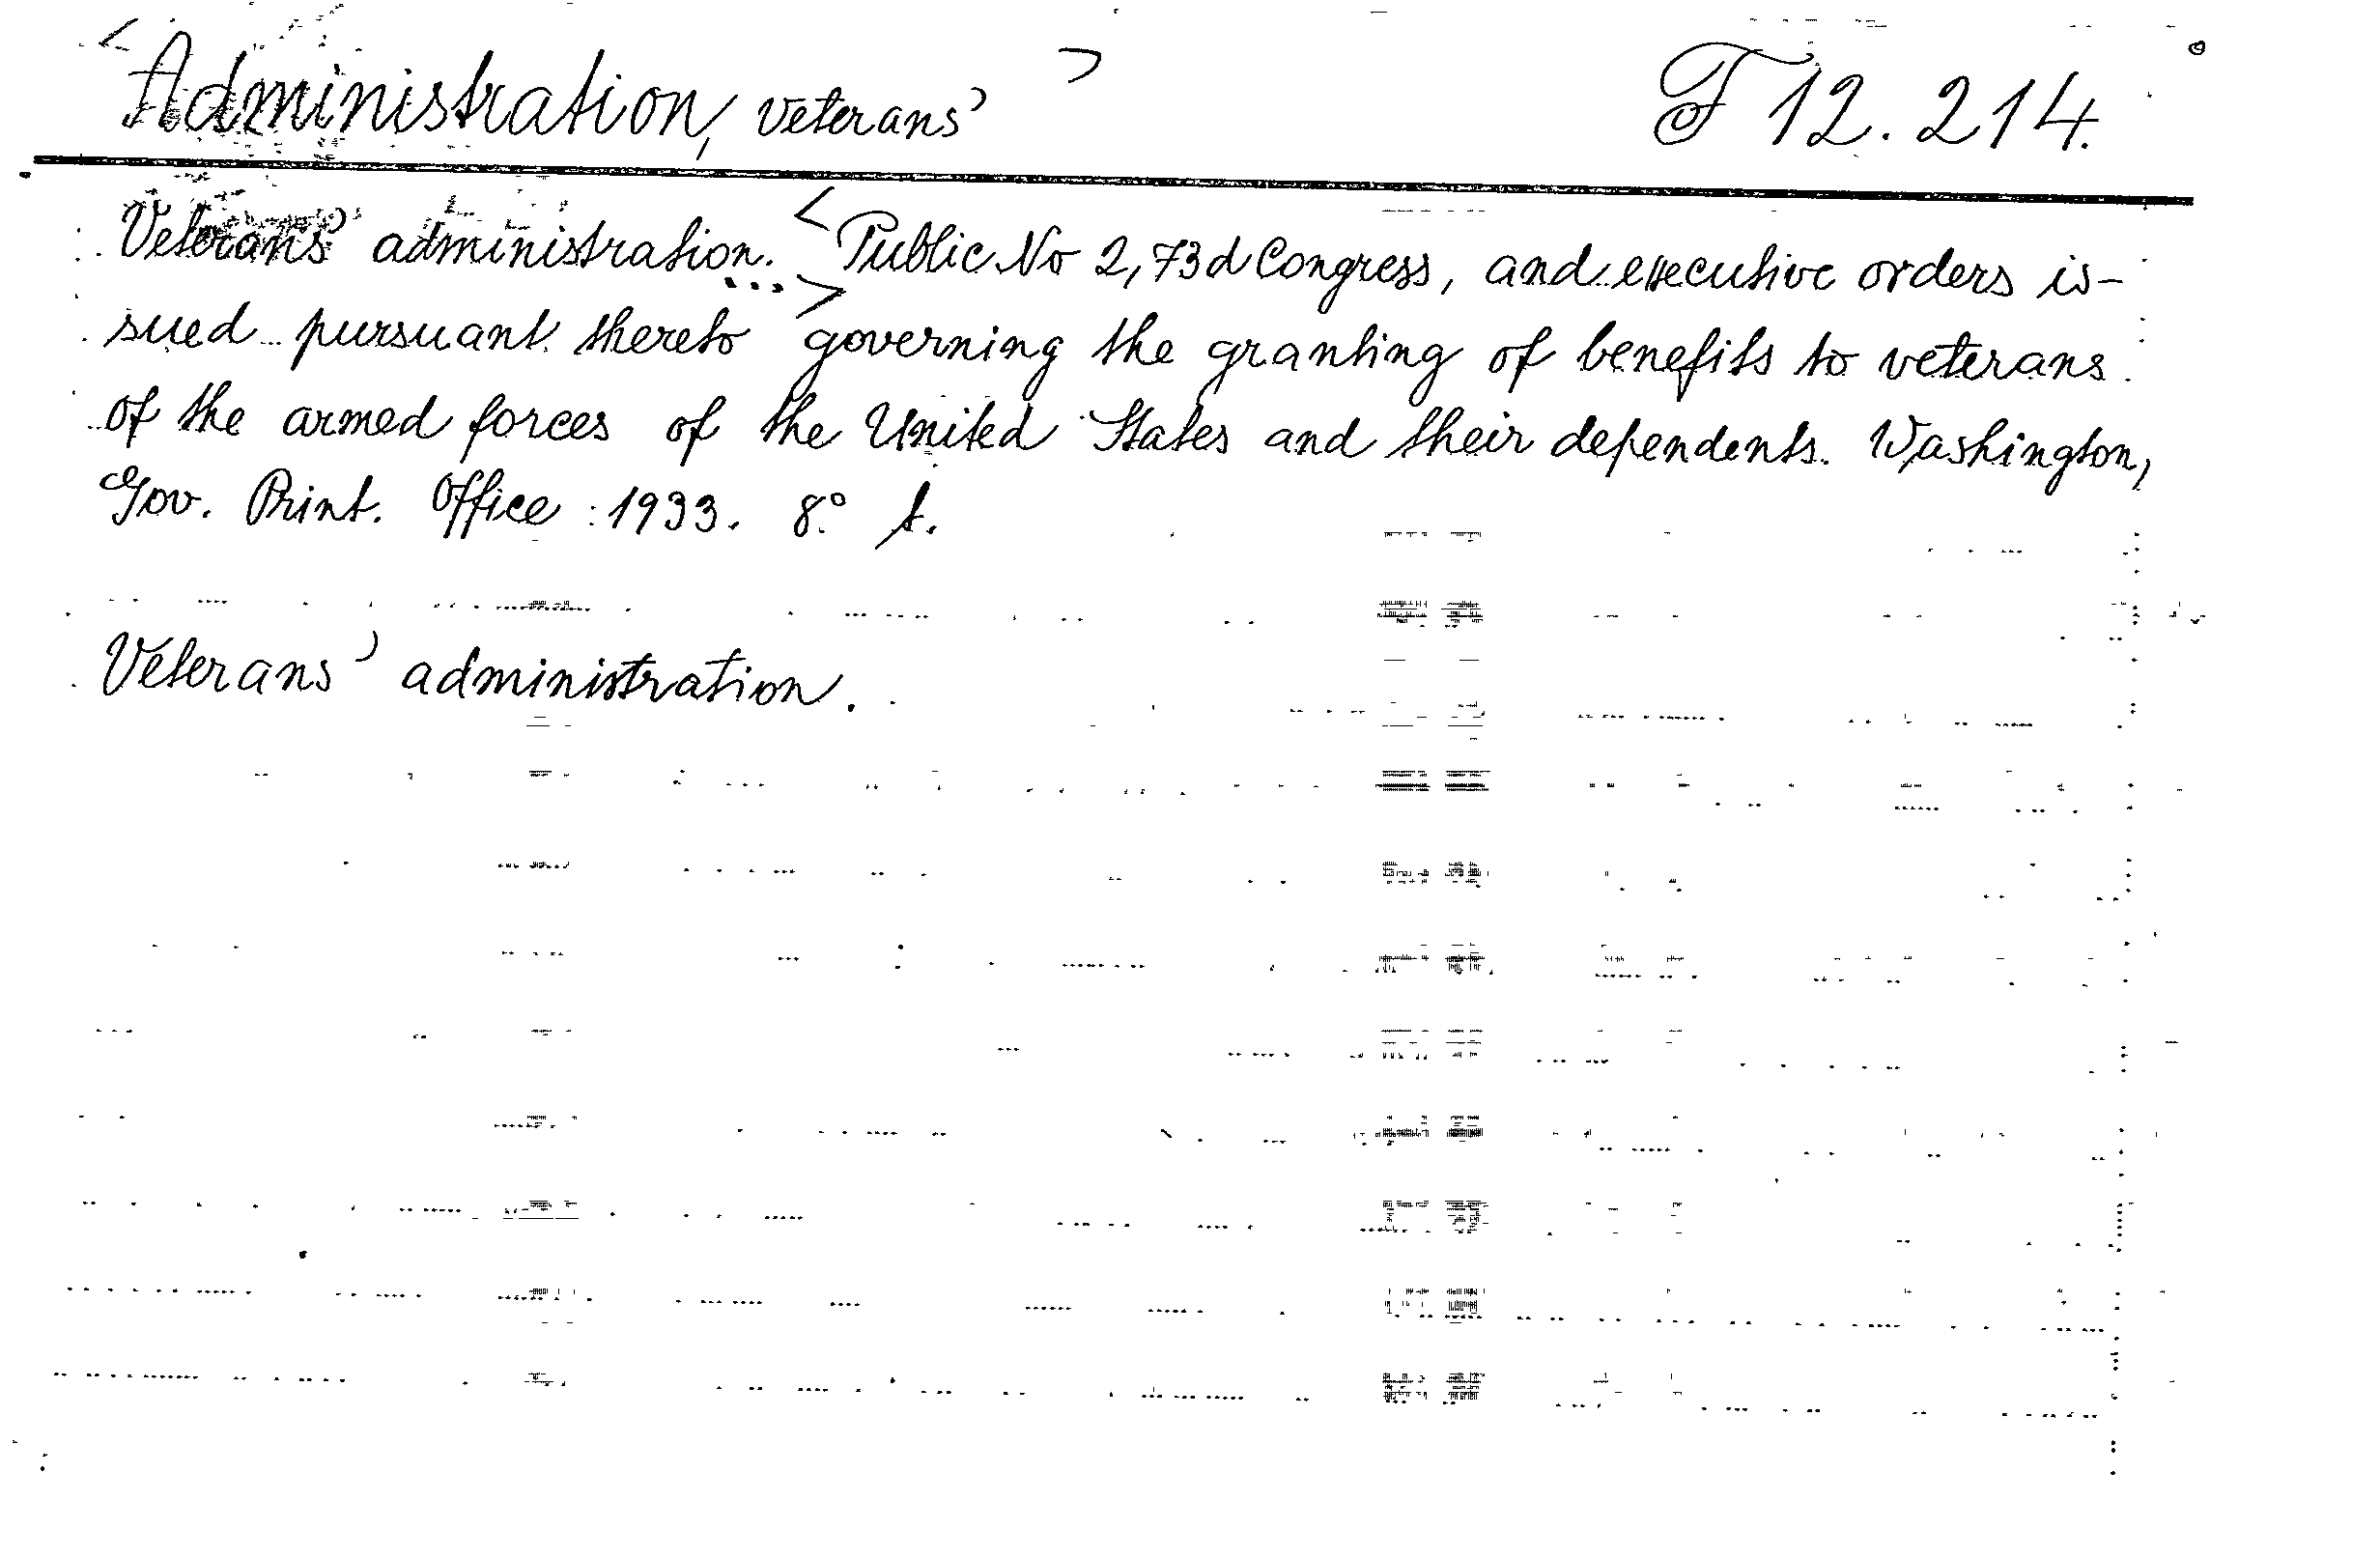 <Administration, Veterans'> F 12.214.
Veterans' administration. ... <Public No 2, 73d Congress, and executive orders is-
sued pursuant thereto> governing the granting of benefits to veterans
of the armed forces of the United States and their dependents. Washington,
Gov. Print. Office 1933. 8° t.
Veterans' administration.